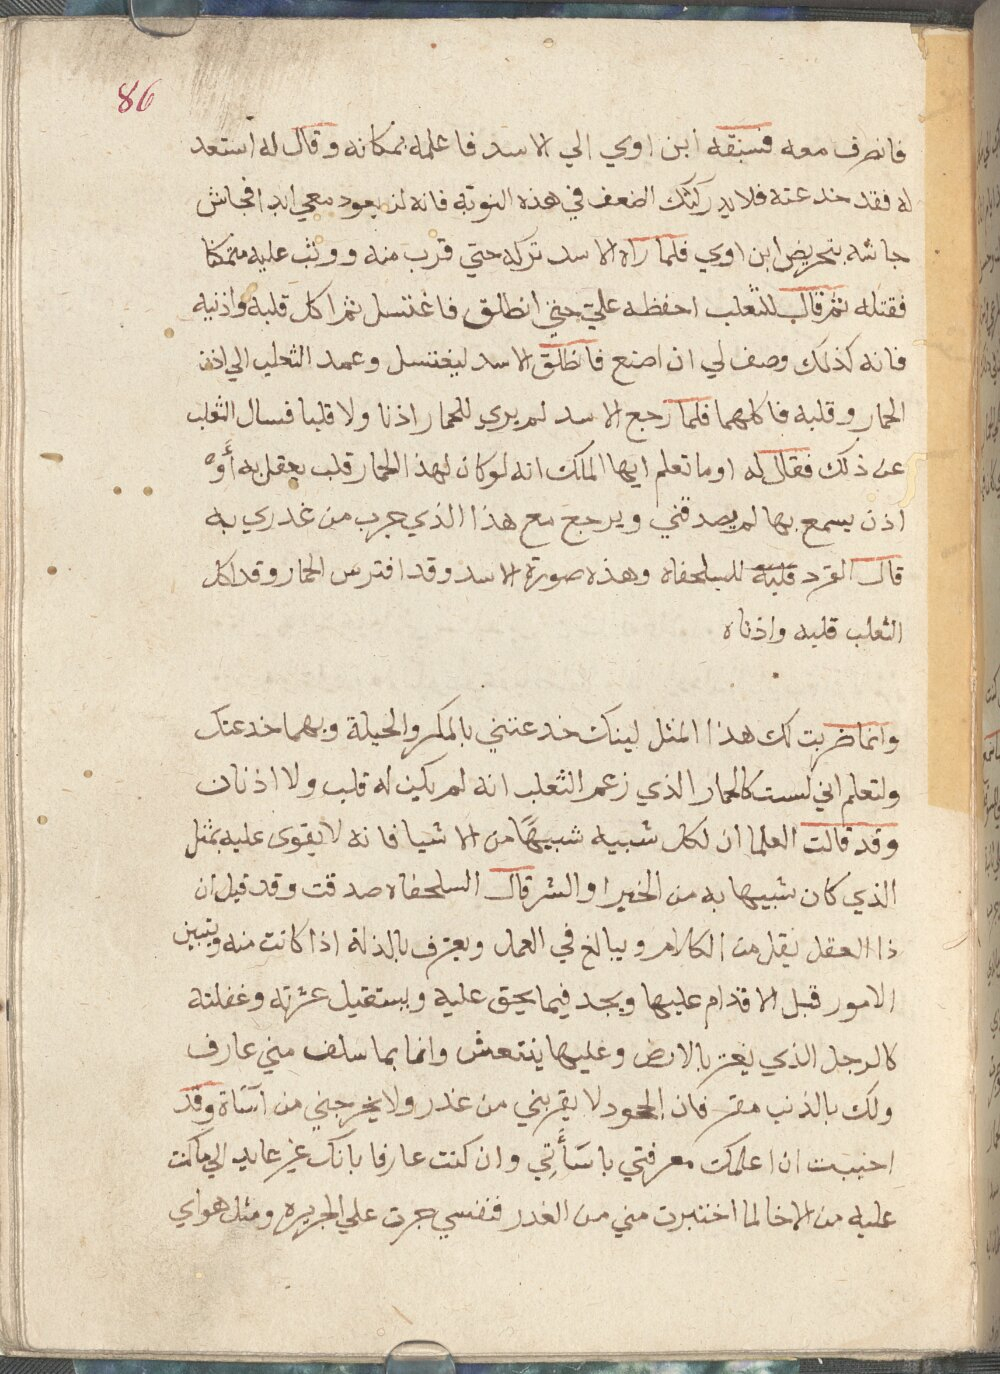 86
فانصرف معه فسبقه ابن اوي الي الاسد فاعلمه بمكانه وقال له استعد
له فقد خدعته فلا يدركنك الضعف في هذه النوبة فانه لن يعود معي ابدا فجاش
جاشه بتحريض ابن اوي فلما راه الاسد تركه حتي قرب منه ووثب عليه متمكنا
فقتله ثم قال للثعلب احفظه علي حتي انطلق فاغتسل ثم اكل قلبه واذنيه
فانه كذلك وصف لي ان اصنع فانطلق الاسد ليغتسل وعمد الثعلب الي اذن
الحمار وقلبه فاكلهما فلما رجع الاسد لم يري للحمار اذنا ولا قلبا فسال الثعلب
عن ذلك فقال له اوما تعلم ايها الملك انه لو كان لهذا الحمار قلب يعقل به أو
اذن يسمع بها لم يصدقني ويرجع مع هذا الذي جرب من غدري به
قال القرد قلبه للسلحفاه وهذه صورة الاسد وقد افترس الحمار وقد اكل
الثعلب قلبه واذناه
وانما ضربت لك هذا المثل لينك خدعتني بالمكر والحيلة وبهما خدعتك
ولتعلم اني لست كالحمار الذي زعم الثعلب انه لم يكن له قلب ولا اذنان
وقد قالت العلما ان لكل شبيه شبيهًا من الاشيا فانه لا يقوى عليه بمثل
الذي كان شبيها به من الخير او الشر قال السلحفاه صدقت وقد قيل ان
ذا العقل يقل من الكلام ويبالغ في العمل ويعترف بالذلة اذا كانت منه ويتبين
الامور قبل الاقدام عليها ويجد فيما يحق عليه ويستقيل عثرته وغفلته
كالرجل الذي يعثر بالارض وعليها ينتعش وانا بما سلف مني عارف
ولك بالذنب مقر فان الجحود لا يقربني من غدر ولا يخرجني من اساة وقد
احببت ان اعلمك معرفتي باسأتي وان كنت عارفا بانك غير عايد الي ما كنت
عليه من الاخا لما اختبرت مني من الغدر فنفسي جرت علي الجريره ومثل هواي